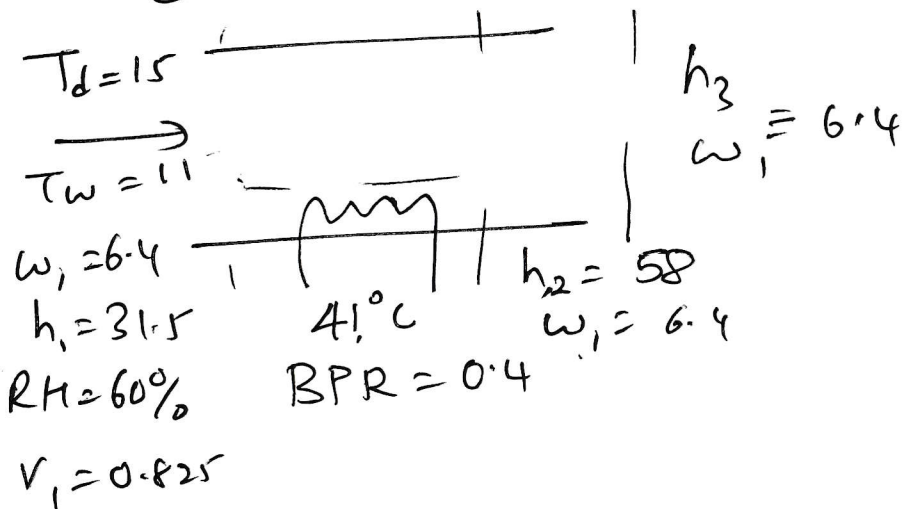 Td=15
Tw=11
w₁=6.4
h₁=31.5
RH=60%
V₁=0.825
41°C
BPR=0.4
h₂=58
w₁=6.4
h₃
w₁=6.4